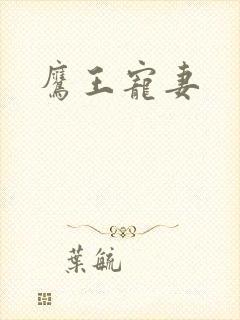 鷹王寵妻
葉毓